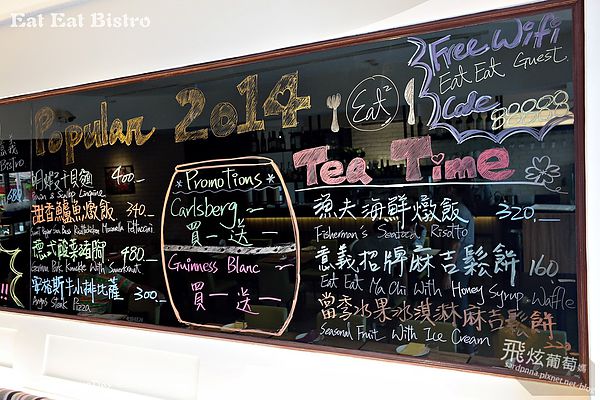 Eat Eat Bistro
Popular 2014
Eat²
Free Wifi
Eat Eat Guest
Code 88888
意義
Bistro
明蝦干貝麵 400.-
Prawn & Scallop Linguine
甜香鱸魚燉飯 340.-
德式酸菜豬腳 480.-
German Pork Knuckle With Sauerkraut
安格斯牛小排比薩 300.-
Angus Steak Pizza
*Promotions*
Carlsberg
買一送一
Guinness Blanc
買一送一
Tea Time
漁夫海鮮燉飯 320.-
Fisherman's Seafood Risotto
意義招牌麻吉鬆餅 160.-
Eat Eat Ma Chi With Honey Syrup Waffle
當季水果冰淇淋麻吉鬆餅 220.-
Seasonal Fruit With Ice Cream
飛炫葡萄媽
sardpnna.pixnet.net/blog